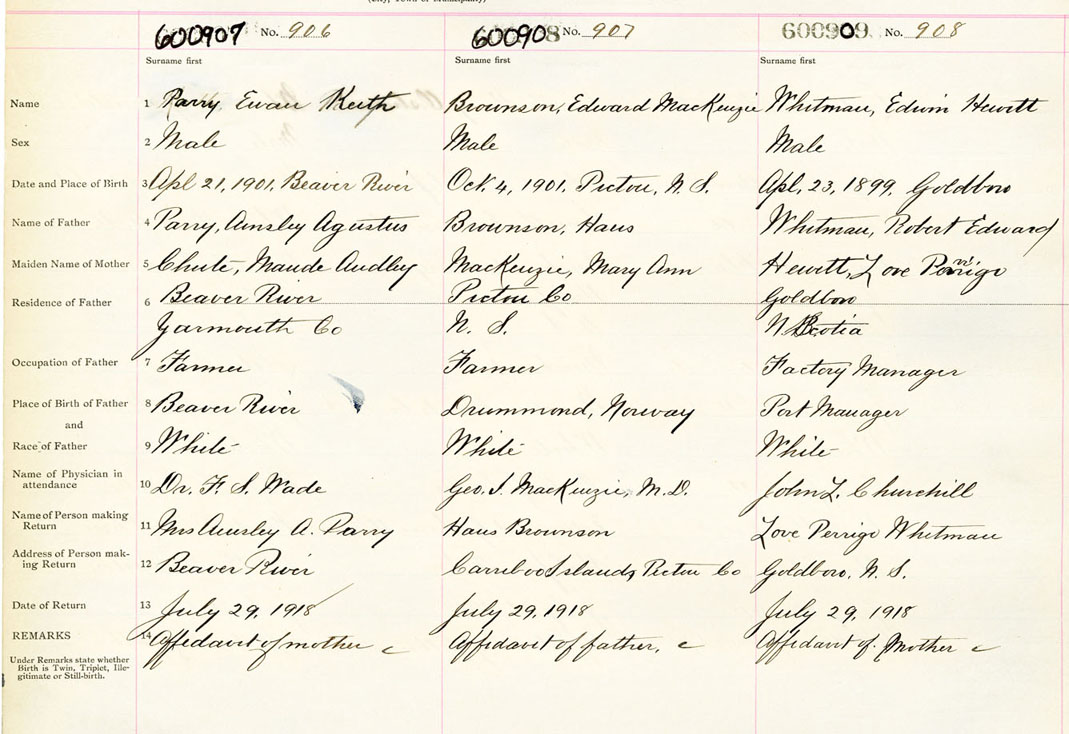 600907 No. 906 600908 No. 907 600909 No. 908
Surname first Surname first Surname first
Name 1 Parry, Ewan Keith Brownson, Edward MacKenzie Whitman, Edwin Hewitt
Sex 2 Male Male Male
Date and Place of Birth 3 Apl 21, 1901, Beaver River Oct. 4, 1901, Pictou, N. S. Apl, 23, 1899, Goldboro
Name of Father 4 Parry, Ainsley Agustus Brownson, Hans Whitman, Robert Edward
Maiden Name of Mother 5 Chute, Maude Audley MacKenzie, Mary Ann Hewitt, Love Perrigo
Residence of Father 6 Beaver River Pictou Co Goldboro
Yarmouth Co N. S. N Scotia
Occupation of Father 7 Farmer Farmer Factory Manager
Place of Birth of Father 8 Beaver River Drummond, Norway Port Manager
and
Race of Father 9 White White White
Name of Physician in
attendance 10 Dr. F. S. Wade Geo. I. MacKenzie, M. D. John L. Churchill
Name of Person making
Return 11 Mrs Ainsley A. Parry Hans Brownson Love Perrigo Whitman
Address of Person mak-
ing Return 12 Beaver River Carriboo Islands Pictou Co Goldboro, N. S.
Date of Return 13 July 29, 1918 July 29, 1918 July 29, 1918
REMARKS 14 Affidavit of mother c Affidavit of father, c Affidavit of. Mother c
Under Remarks state whether
Birth is Twin, Triplet, Ille-
gitimate or Still-birth.